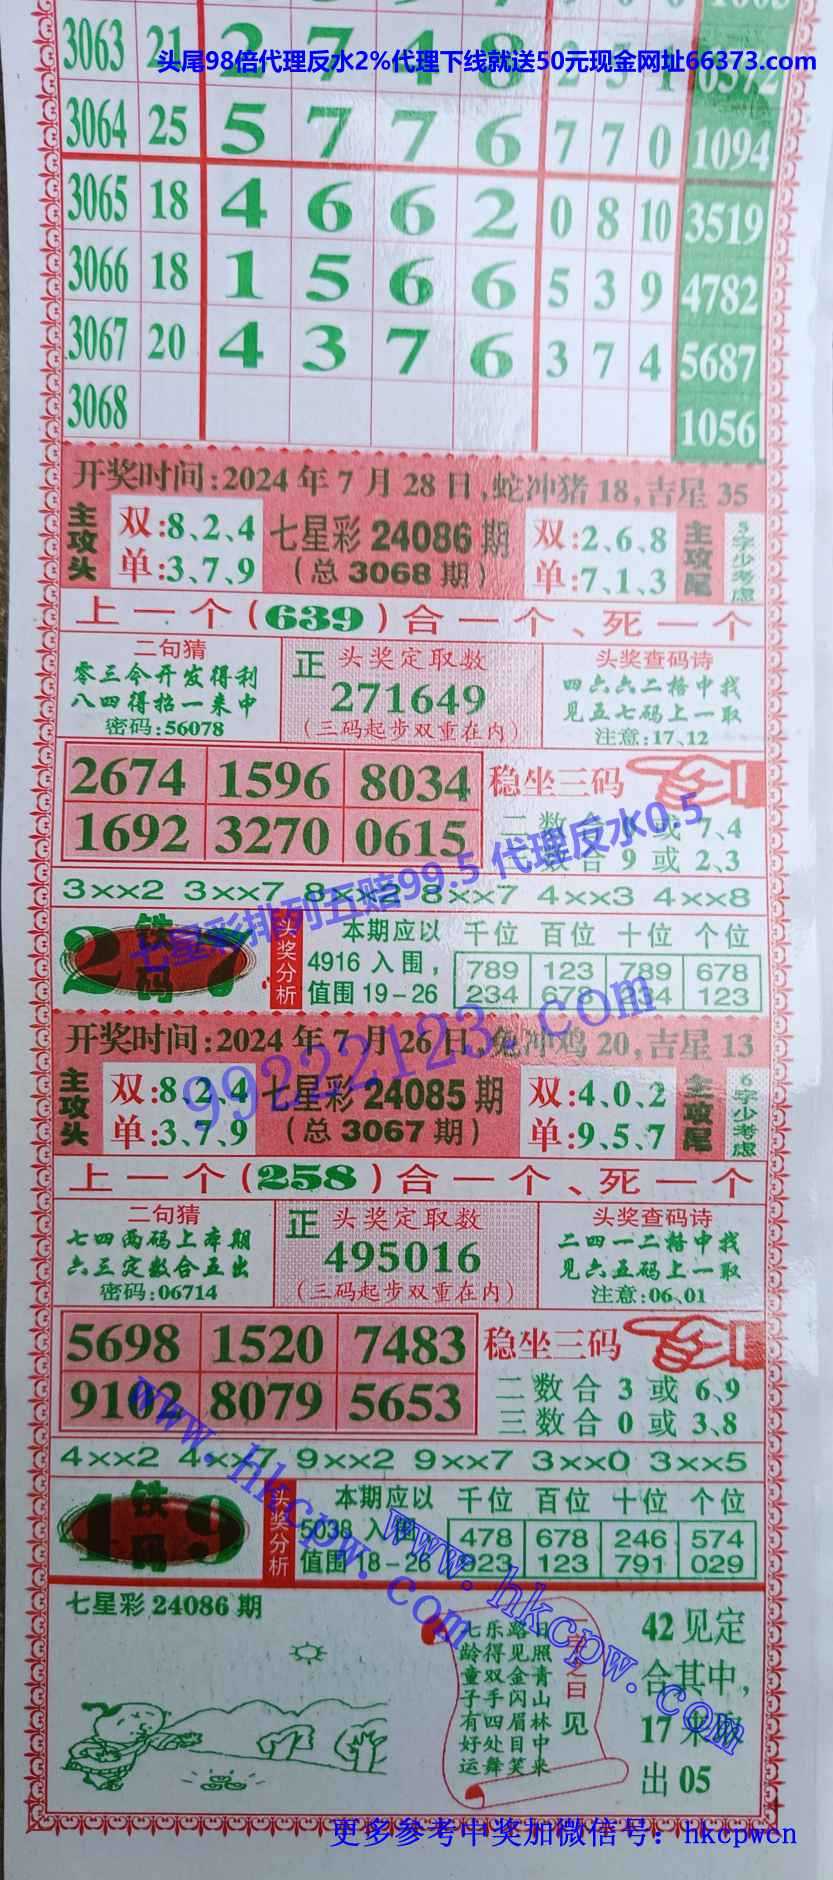 头尾98倍代理反水2%代理下线就送50元现金网址66373.com
3063 21 2 7 4 8 2 3 1 0372
3064 25 5 7 7 6 7 7 0 1094
3065 18 4 6 6 2 0 8 10 3519
3066 18 1 5 6 6 5 3 9 4782
3067 20 4 3 7 6 3 7 4 5687
3068 1056
开奖时间:2024年7月28日,蛇冲猪18,吉星35
主攻头
双:8、2、4
单:3、7、9
七星彩24086期
(总3068期)
双:2、6、8
单:7、1、3
主攻尾
5字少考虑
上一个(639)合一个、死一个
二句猜
零三令开发得利
八四得招一来中
密码:56078
正 头奖定取数
271649
(三码起步双重在内)
头奖查码诗
四六六二格中找
见五七码上一取
注意:17、12
2674 1596 8034
1692 3270 0615
稳坐三码
二数合 或 7、4
数合 9 或 2、3
3××2 3××7 8××2 8××7 4××3 4××8
七星彩排列五赔99.5 代理反水0.5
2 铁码 7
头奖分析
本期应以
4916入围,
值围19-26
千位 百位 十位 个位
789 123 789 678
234 678 234 123
99222123.com
开奖时间:2024年7月26日,兔冲鸡20,吉星13
主攻头
双:8、2、4
单:3、7、9
七星彩24085期
(总3067期)
双:4、0、2
单:9、5、7
主攻尾
6字少考虑
上一个(258)合一个、死一个
二句猜
七四两码上本期
六三定数合五出
密码:06714
正 头奖定取数
495016
(三码起步双重在内)
头奖查码诗
二四一二格中找
见六五码上一取
注意:06、01
5698 1520 7483
9102 8079 5653
稳坐三码
二数合 3 或 6、9
三数合 0 或 3、8
4××2 4××7 9××2 9××7 3××0 3××5
www.hkcpw.com
4 铁码 9
头奖分析
本期应以
5038入围
值围18-26
千位 百位 十位 个位
478 678 246 574
923 123 791 029
www.hkcpw.com
七星彩24086期
日照青山林中来
路见金闪眉目笑
乐得双手四处舞
七龄童子有好运
42见定
合其中,
17来
出05
更多参考中奖加微信号：hkcpwcn